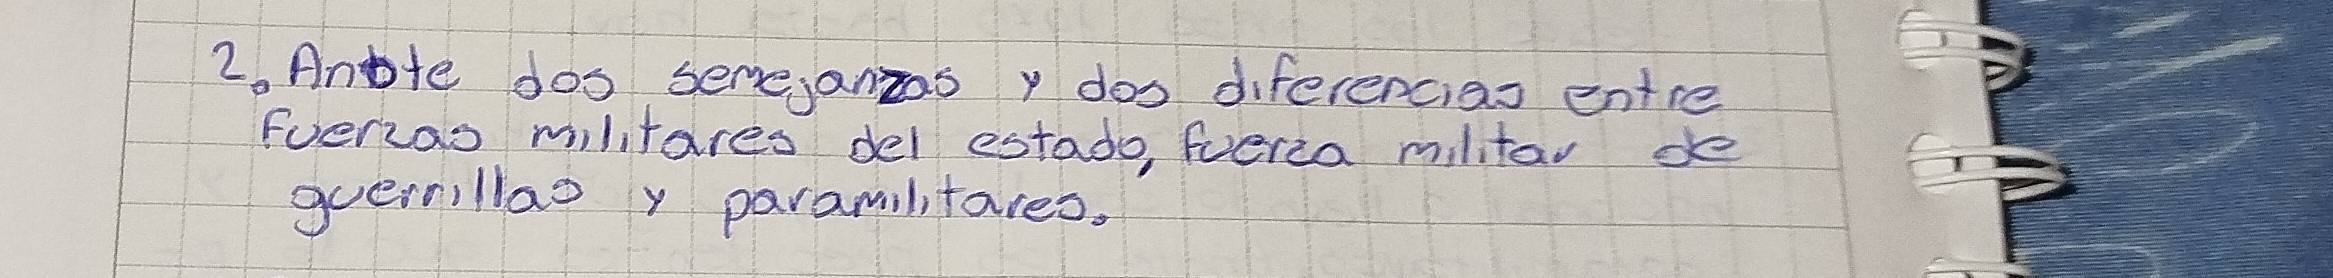 2. Anote dos semejanzas y dos diferencias entre
Fuerzas militares del estado, fuerza militar de
guerrillas y paramilitares.